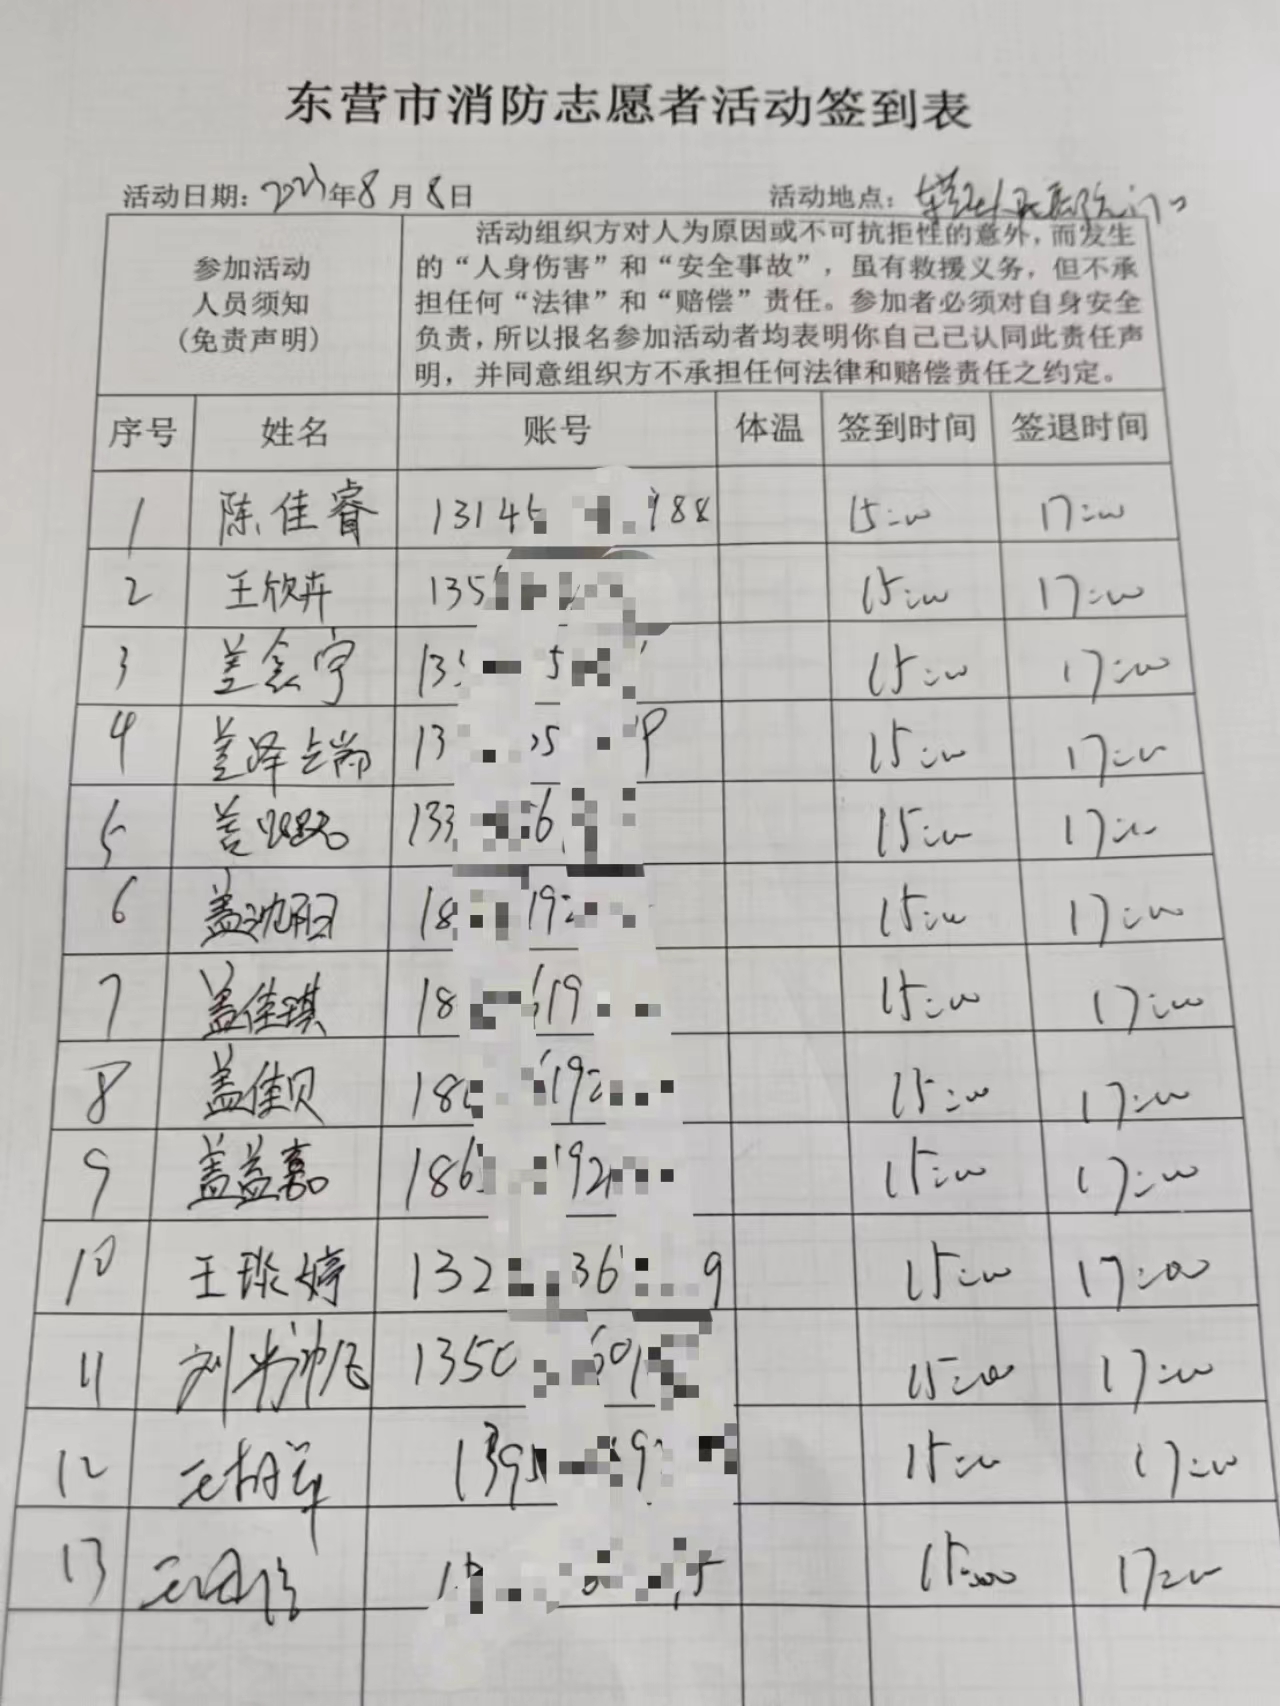 东营市消防志愿者活动签到表
活动日期：2023年8月8日 活动地点：
参加活动
人员须知
(免责声明)
活动组织方对人为原因或不可抗拒性的意外，而发生
的“人身伤害”和“安全事故”，虽有救援义务，但不承
担任何“法律”和“赔偿”责任。参加者必须对自身安全
负责，所以报名参加活动者均表明你自己己认同此责任声
明，并同意组织方不承担任何法律和赔偿责任之约定。
序号 姓名 账号 体温 签到时间 签退时间
1 陈佳睿 1314 988 15:00 17:00
2 王欣卉 135 15:00 17:00
3 盖 宇 13 5 15:00 17:00
4 盖泽 13 5 9 15:00 17:00
5 盖 133 6 15:00 17:00
6 盖 18 192 15:00 17:00
7 盖佳琪 18 619 15:00 17:00
8 盖佳贝 18 192 15:00 17:00
9 盖益嘉 186 92 15:00 17:00
10 王琰婷 132 36 9 15:00 17:00
11 刘 135 601 15:00 17:00
12 1395 9 15:00 17:00
13 1 5 15:00 17:00